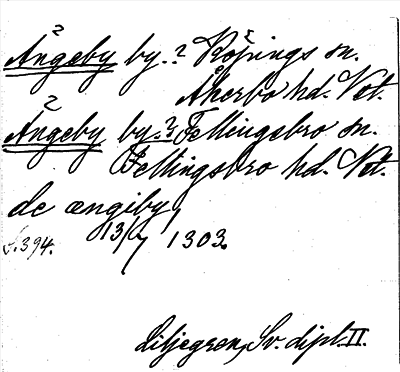 Ängeby by.? Köpings sn.
Åkerbo hd. Vstl.
Ängeby by.? Fellingsbro sn.
Fellingsbro hd. Vstl.
de ængiby
s. 394. 13/7 1303.
Liljegren, Sv. dipl. II.